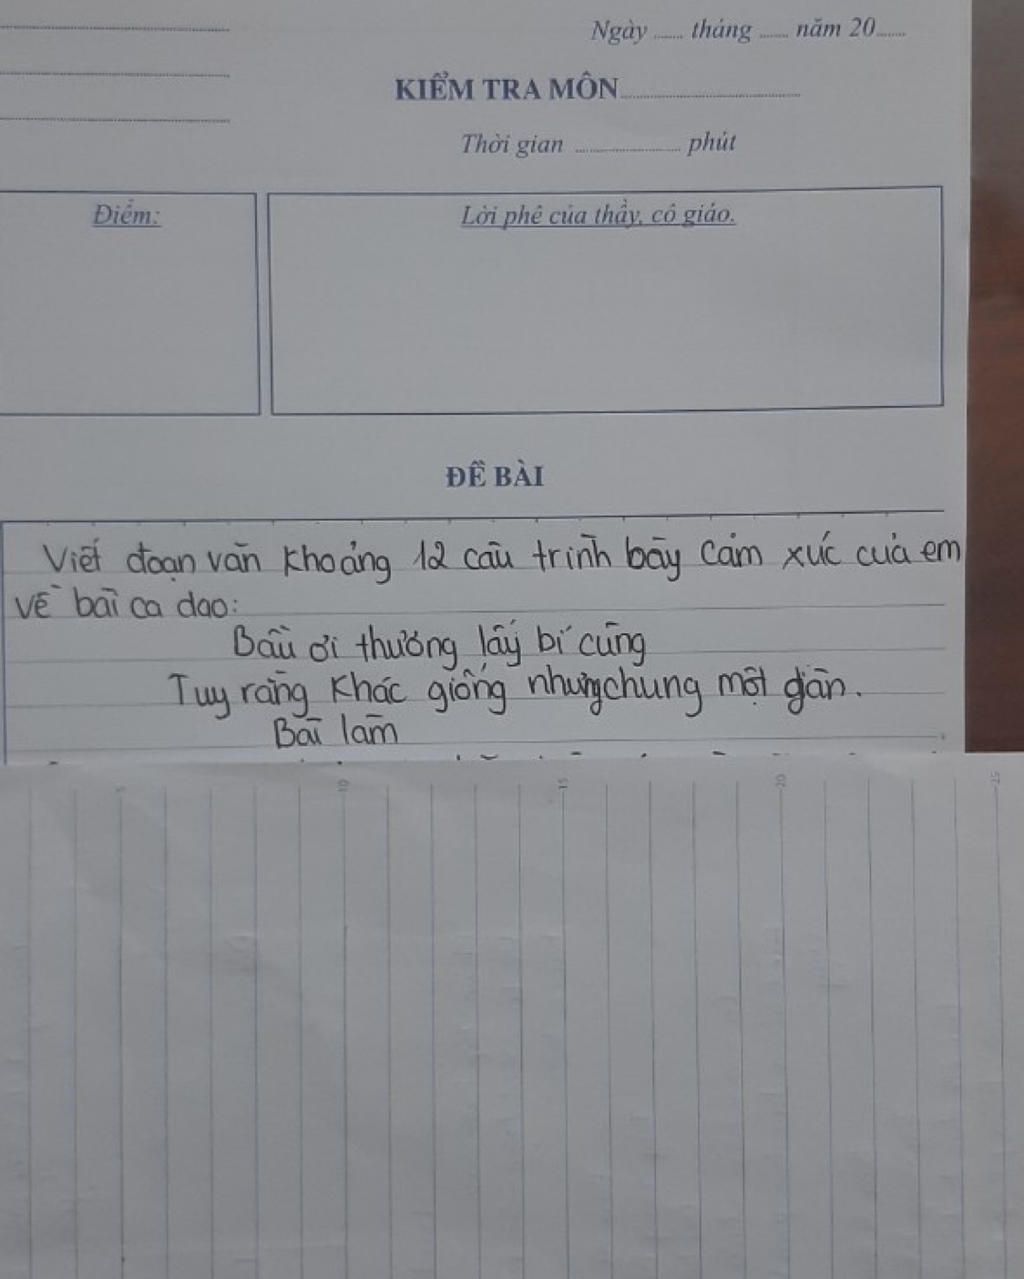 Ngày ...... tháng ...... năm 20......
KIỂM TRA MÔN..............................
Thời gian ..................... phút
Điểm:
Lời phê của thầy, cô giáo.
ĐỀ BÀI
Viết đoạn văn khoảng 12 câu trình bày cảm xúc của em
về bài ca dao:
Bầu ơi thương lấy bí cùng
Tuy rằng khác giống nhưng chung một giàn.
Bài làm
5
10
15
20
25